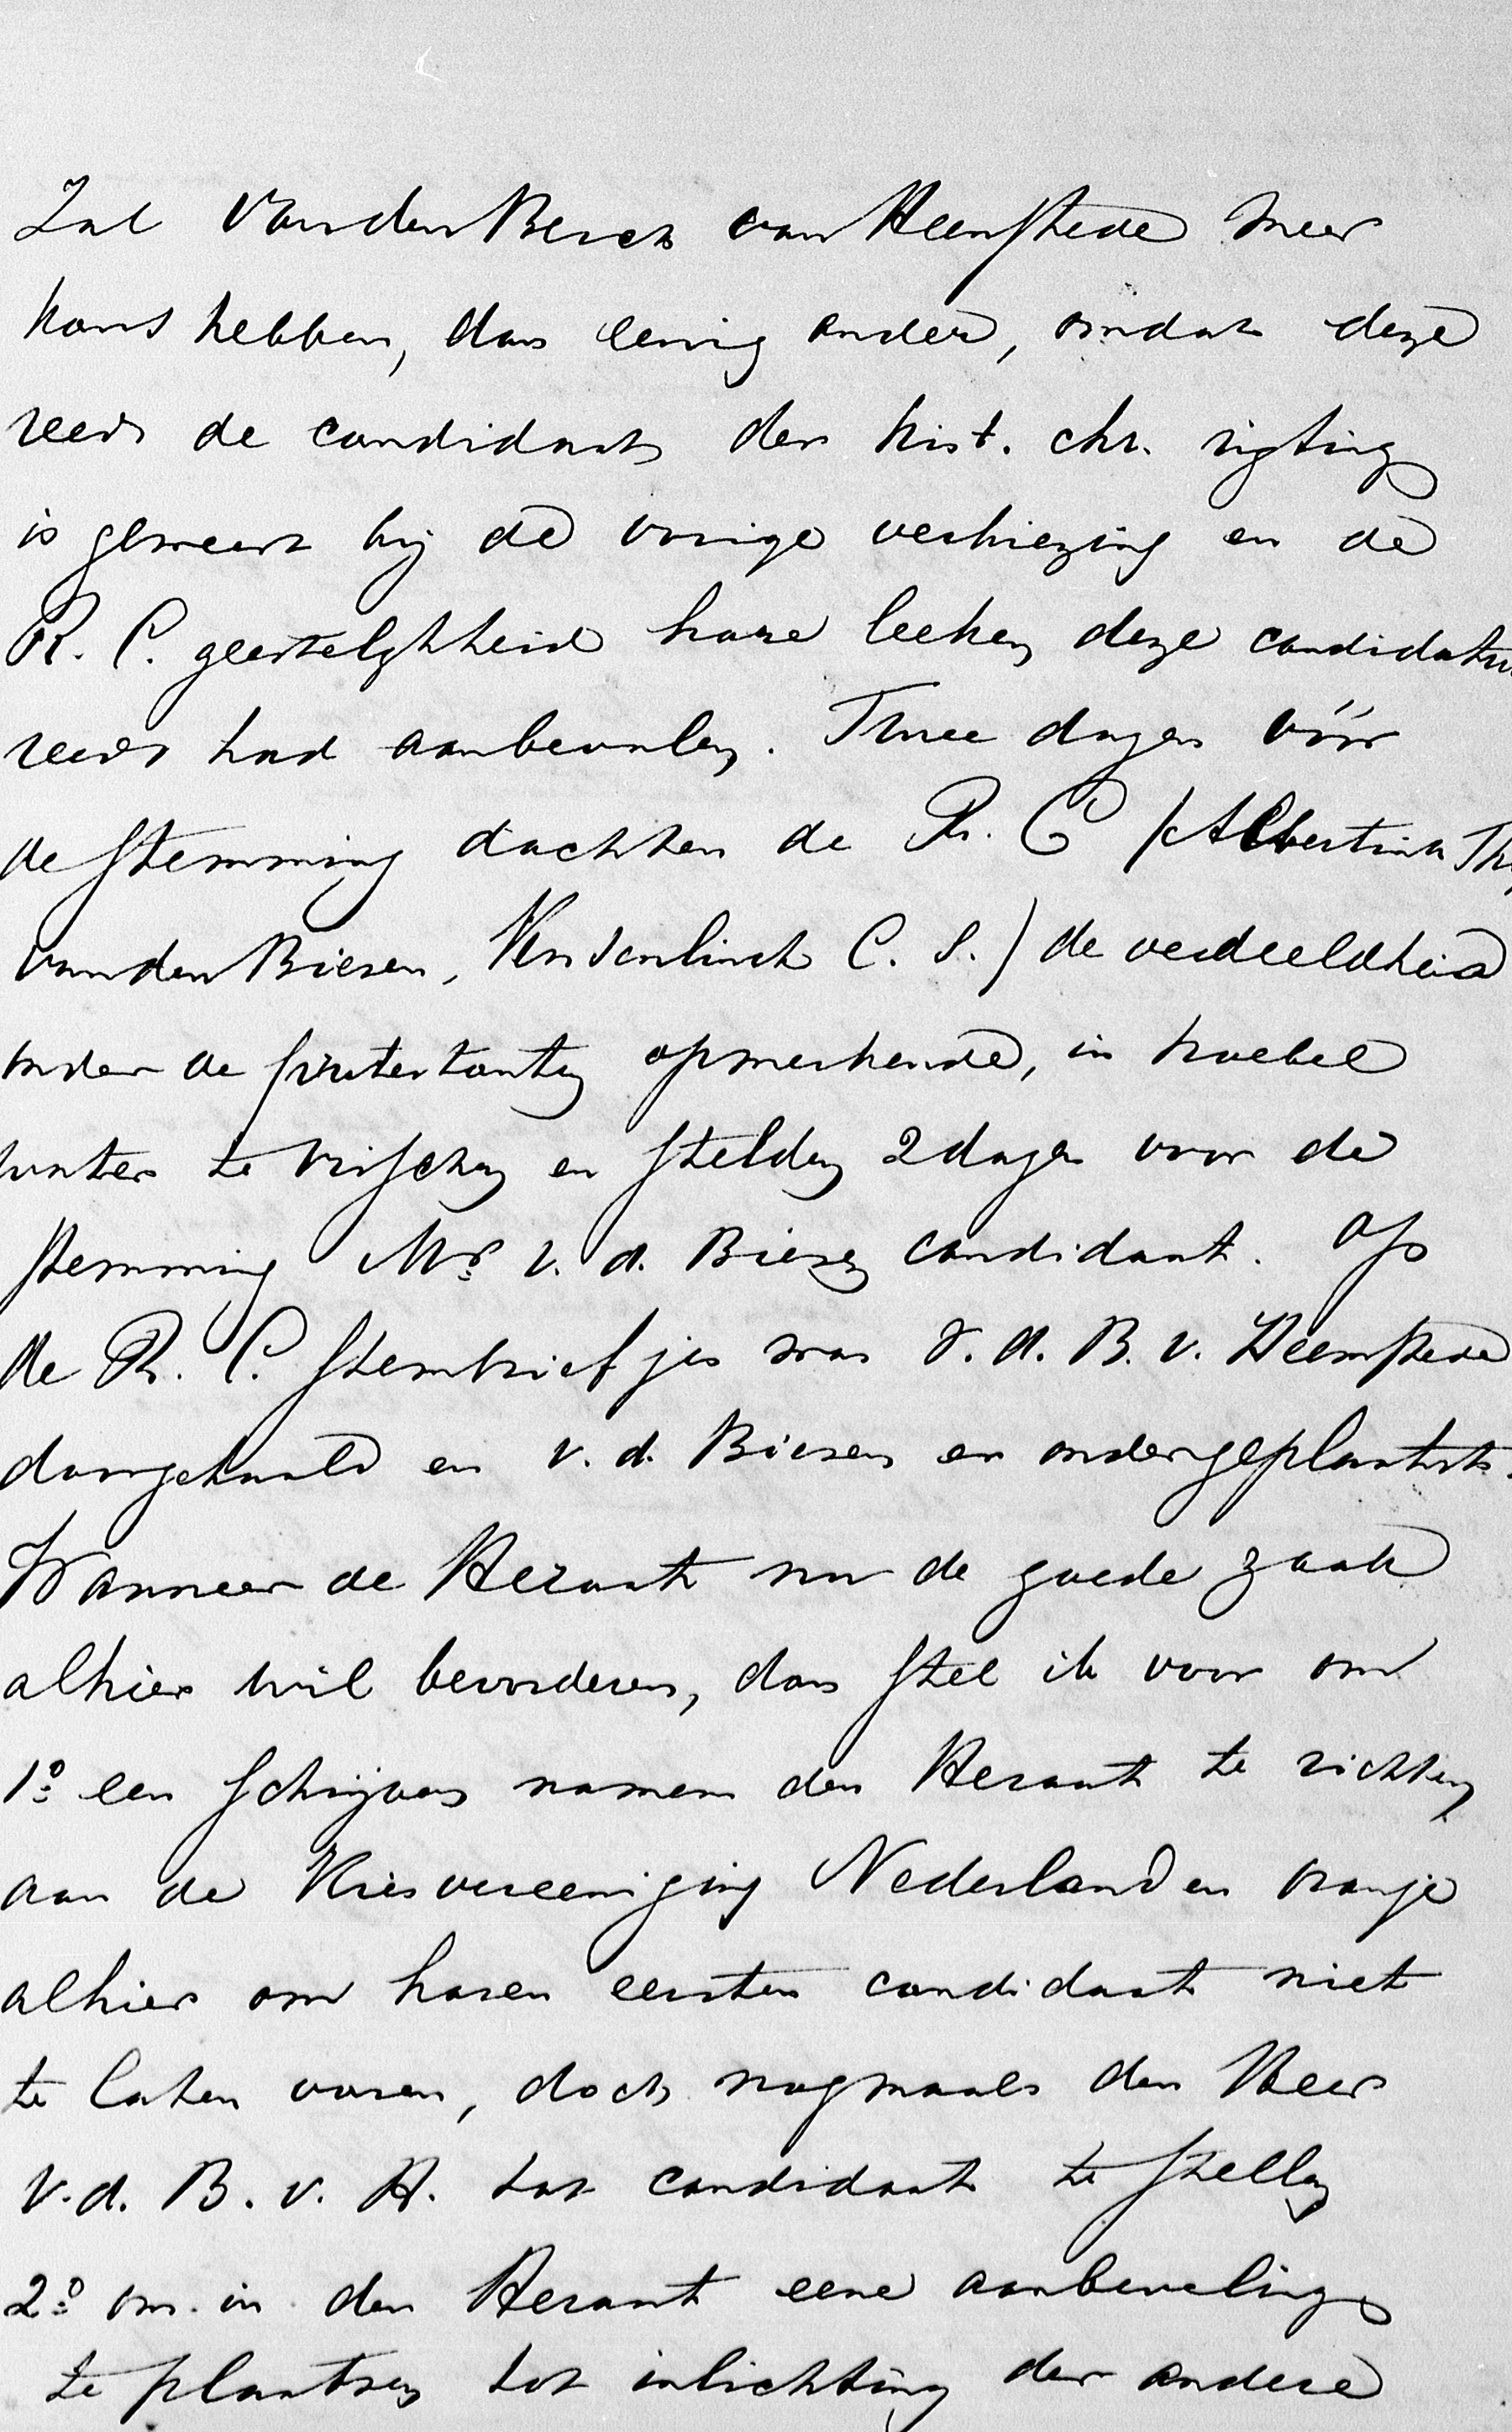 Zal Van den Berch van Heemstede meer
kans hebben, dan eenig ander, omdat deze
reeds de candidaat der hist. chr. rigting
is geweest bij de vorige verkiezing en de
R. C. geestelijkheid hare leeken deze candidatu
reeds had aanbevolen. Twee dagen vóór
de stemming dachten de R. C (Alberdink Th
van den Biesen, C. S.) de verdeeldheid
onder de protestanten opmerkende, in troebel
water te visschen en stelden 2 dagen voor de
stemming Mr v. d. Biesen candidaat. Op
de R. C. stembriefjes was v. d. B. v. Heemstede
doorgehaald en v. d. Biesen er onder geplaatst.
Wanneer de Heraut nu de goede zaak
alhier wil bevorderen, dan stel ik voor om
1o een schrijven namens den Heraut te richten
aan de Kiesvereeniging Nederland en Oranje
alhier om haren eersten candidaat niet
te laten varen, doch nogmaals den Heer
V. d. B. v. H. tot candidaat te stellen
2o om in den Heraut eene aanbeveling
te plaatsen tot inlichting der andere